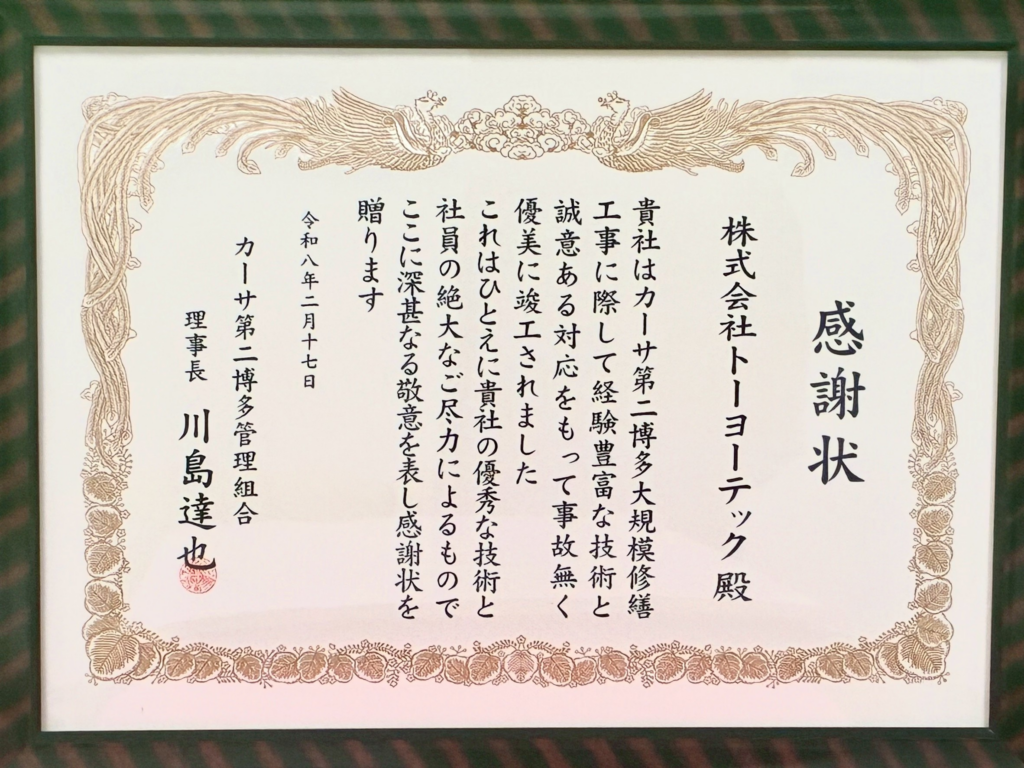 感謝状
株式会社トーヨーテック 殿
貴社はカーサ第二博多大規模修繕
工事に際して経験豊富な技術と
誠意ある対応をもって事故無く
優美に竣工されました
これはひとえに貴社の優秀な技術と
社員の絶大なご尽力によるもので
ここに深甚なる敬意を表し感謝状を
贈ります
令和八年二月十七日
カーサ第二博多管理組合
理事長 川島達也